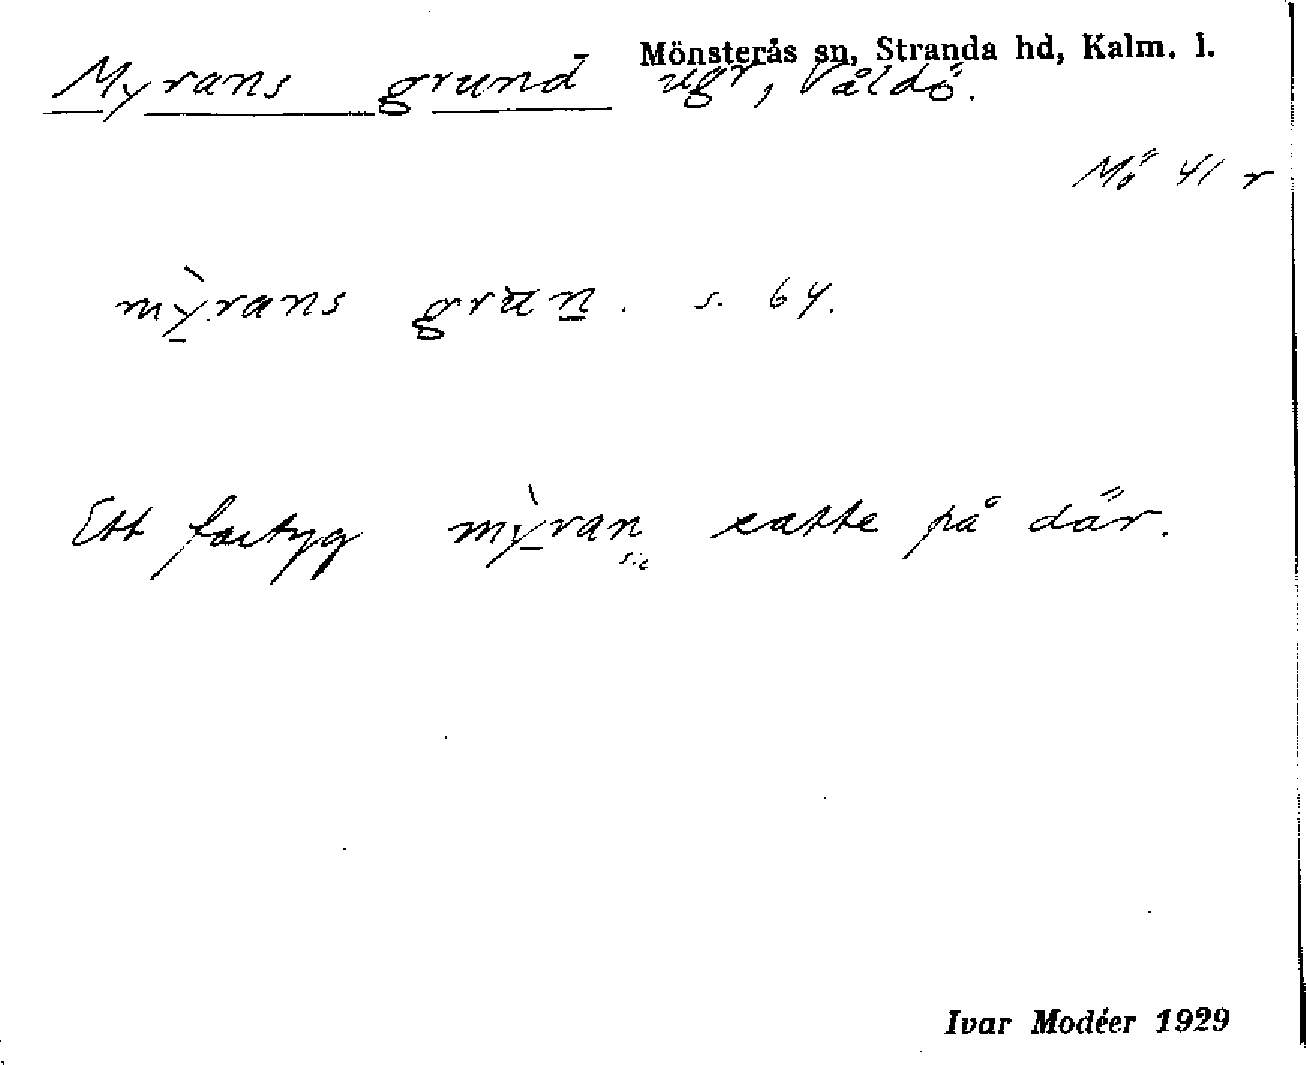 Mönsterås sn, Stranda hd, Kalm. l.
Myrans grund ugr, Våldö.
Mö 41 r
mỳrans grun. s. 64.
Ett fartyg mỳran satte på där.
sic
Ivar Modéer 1929